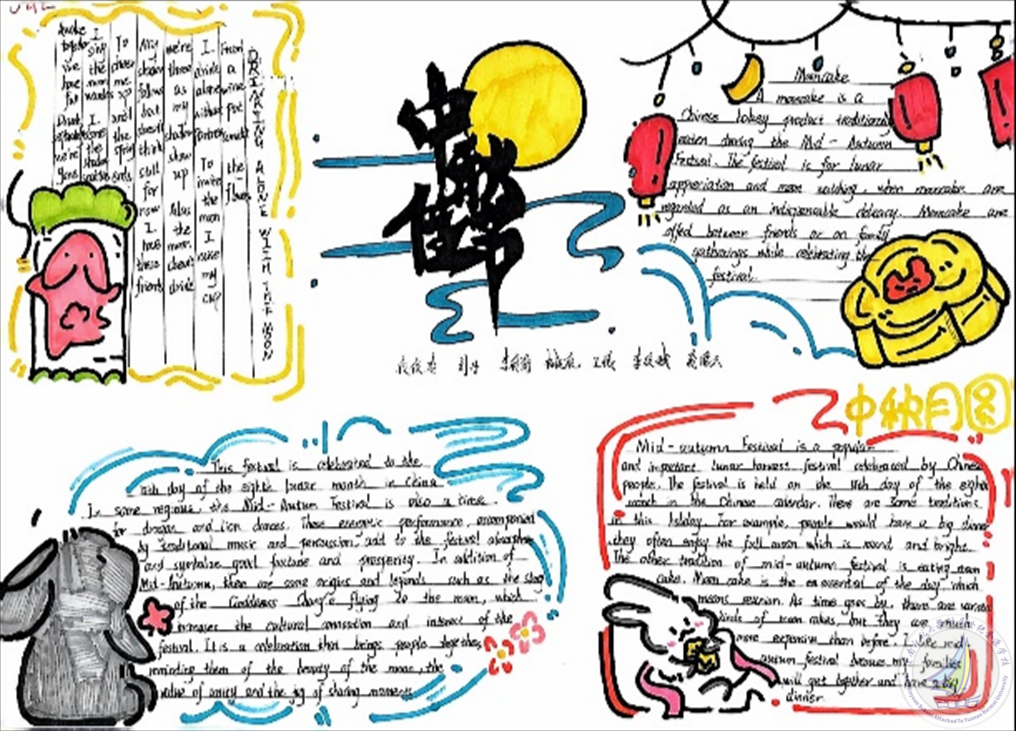 DRINKING ALONE WITH THE MOON
From a wine pot amidst the flowers
I drink alone without partners
To invite the moon I raise my cup
We're three as my shadow show up
Alas the moon doesn't drink
My shadow follows but doesn't think
still for now I have these friends
To cheer me up and the spring ends
I sing the moon wanders
I the shadow
Awake together we have fun
Drunk separately we're gone
中秋佳节
Mooncake
A mooncake is a
Chinese bakery product traditionally
eaten during the Mid-Autumn
Festival. The festival is for lunar
appreciation and moon watching, when mooncake are
regarded as an indispensable delicacy. Mooncake are
offed between friends or on family
gatherings while celebrating the
festival.
This festival is celebrated to the
15th day of the eighth lunar month in China
In some regions, the Mid-Autumn Festival is also a time
for dragon and lion dances. These energetic performance, accompanied
by traditional music and percussion, add to the festival
and symbolize good fortune and prosperity. In addition of
Mid-Autumn, there are some origins and legends such as the story
of the Goddess Chang'e flying to the moon, which
increases the cultural connotation and interest of the
festival. It is a celebration that brings people together,
reminding them of the beauty of the moon, the
value of unity and the joy of sharing moments
中秋月圆
Mid-autumn Festival is a popular
and important lunar harvest festival celebrated by Chinese
people. The festival is held on the 15th day of the eighth
month in the Chinese calendar. There are some traditions
in this holiday. For example, people would have a big dinner
they often enjoy the full moon which is round and bright.
The other tradition of mid-autumn festival is eating moon
cake. Moon cake is the an essential of the day which
means reunion. As time goes by, there are various
kinds of moon cakes, but they are much
more expensive than before. I like mid-
autumn festival because my families
will get together and have a big
dinner.